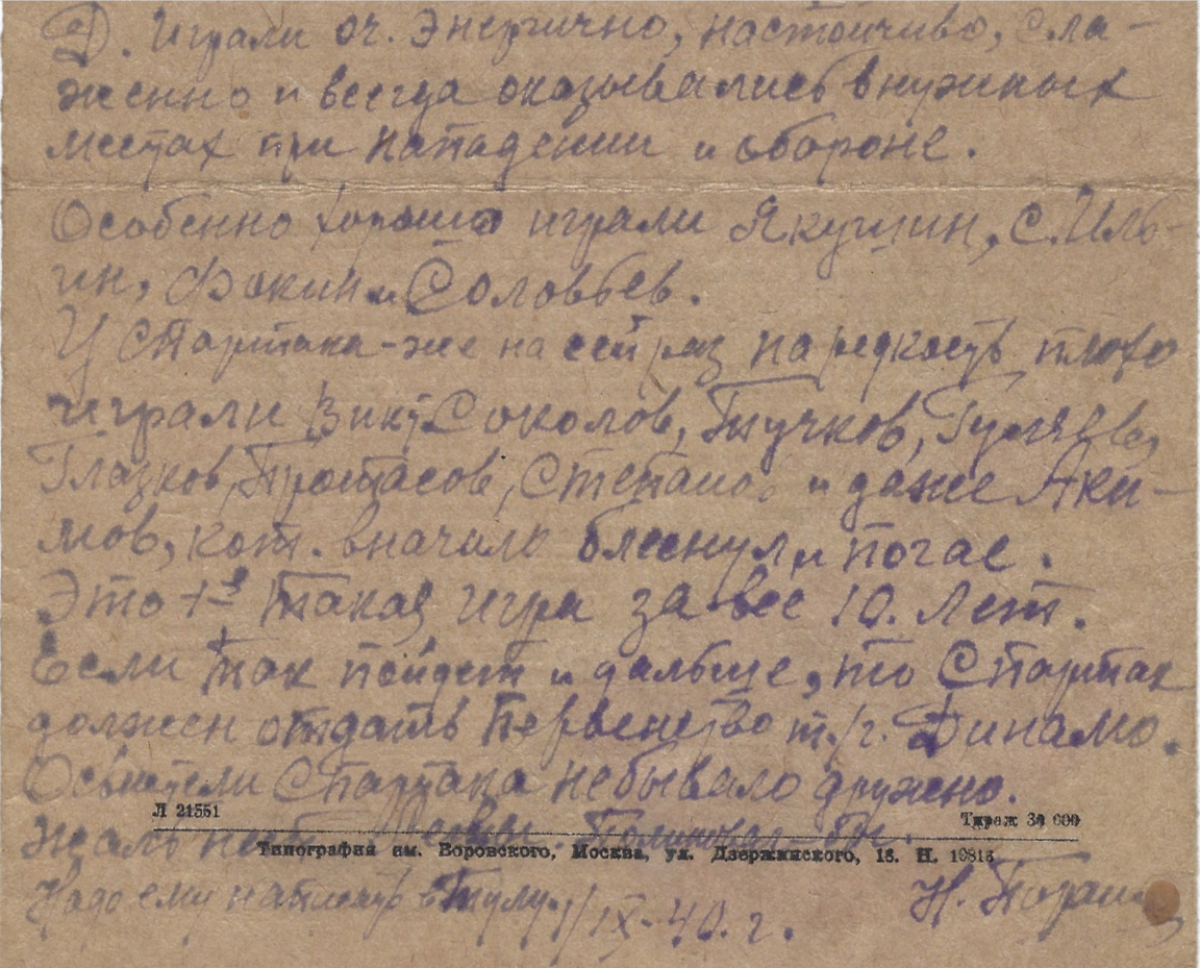 Д. Играли оч. энергично, настойчиво, сла-
женно и всегда оказывались в нужных
местах при нападении и обороне.
Особенно хорошо играли Якушин, С. Иль-
ин, Фокин и Соловьев.
У Спартака-же на сей раз на редкость плохо
играли Викт. Соколов, Тучков, Гуляев,
Глазков, Протасов, Степанов и даже Аки-
мов, кот. вначале блеснул и погас.
Это 1-я такая игра за все 10 лет.
Если так пойдет и дальше, то Спартак
должен отдать первенство т/г. Динамо.
Освистели Спартака небывало дружно.
Л 21551 Тираж 30 000
жаль
Типография им. Воровского, Москва, ул. Дзержинского, 18. Н. 10813
Надо ему написать в Тулу. 1/IX-40. г. Н.